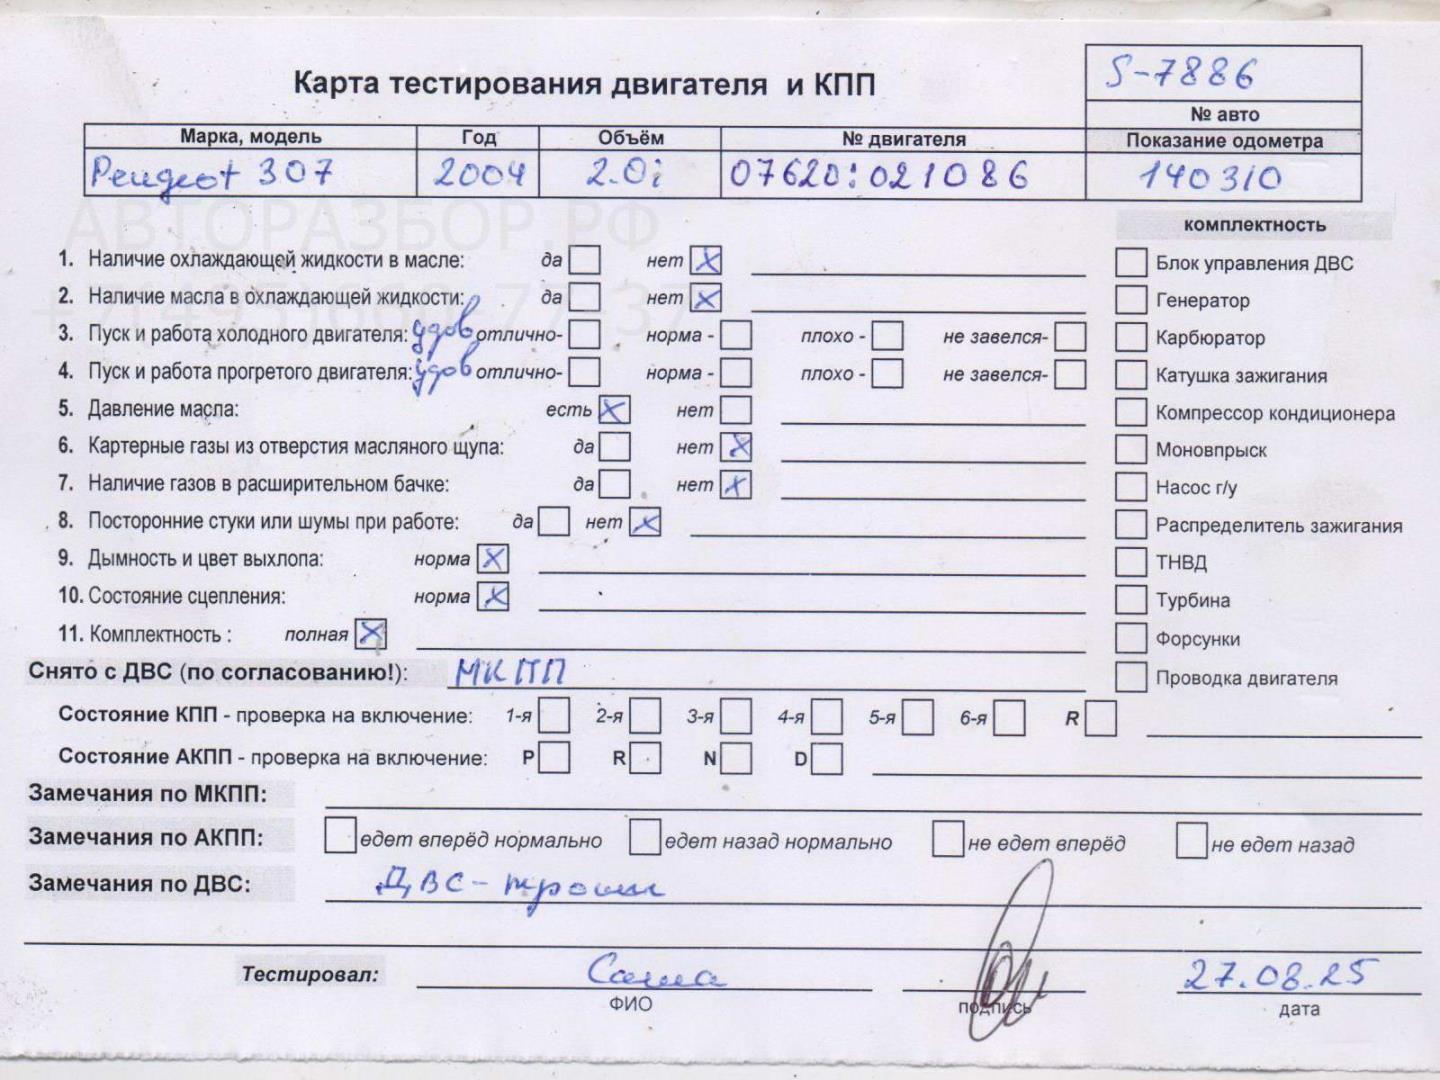 S-7886
Карта тестирования двигателя и КПП
№ авто
Марка, модель Год Объём № двигателя Показание одометра
Peugeot 307 2004 2.0i 07620:021086 140310
АВТОРАЗБОР.РФ
комплектность
1. Наличие охлаждающей жидкости в масле: да нет X
Блок управления ДВС
+7(495)660-77-37
2. Наличие масла в охлаждающей жидкости: да нет X
Генератор
3. Пуск и работа холодного двигателя: удов отлично- норма - плохо - не завелся-
Карбюратор
4. Пуск и работа прогретого двигателя: удов отлично- норма - плохо - не завелся-
Катушка зажигания
5. Давление масла: есть X нет
Компрессор кондиционера
6. Картерные газы из отверстия масляного щупа: да нет X
Моновпрыск
7. Наличие газов в расширительном бачке: да нет X
Насос г/у
8. Посторонние стуки или шумы при работе: да нет X
Распределитель зажигания
9. Дымность и цвет выхлопа: норма X
ТНВД
10. Состояние сцепления: норма X
Турбина
11. Комплектность : полная X
Форсунки
Снято с ДВС (по согласованию!): МКПП
Проводка двигателя
Состояние КПП - проверка на включение: 1-я 2-я 3-я 4-я 5-я 6-я R
Состояние АКПП - проверка на включение: P R N D
Замечания по МКПП:
Замечания по АКПП: едет вперёд нормально едет назад нормально не едет вперёд не едет назад
Замечания по ДВС: ДВС - троит
Тестировал: Саша 27.08.25
ФИО подпись дата